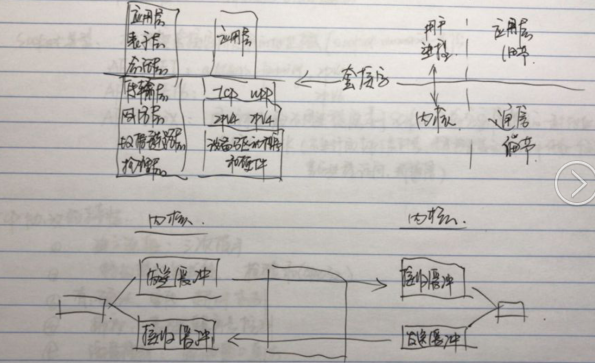 应用层
表示层
会话层
应用层
用户
进程
应用层
细节
套接字
传输层
网络层
数据链路层
物理层
tcp udp
ipv4 ipv6
设备驱动程序
和硬件
内核
通信
细节
内核
内核
发送缓冲
接收缓冲
接收缓冲
发送缓冲